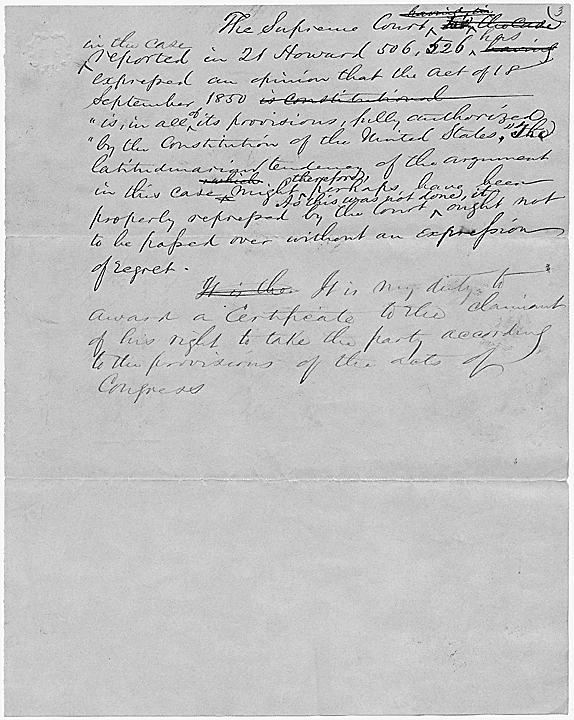 3
having in
The Supreme Court, in the case
in the case has
reported in 21 Howard 506, 526, having
expressed an opinion that the act of 18
September, 1850 is constitutional
"is, in all of its provisions, fully authorized
"by the Constitution of the United States," The
latitudinarian tendency of the argument
which therefore,
in this case might perhaps, have been
As this was not done, it
properly repressed by the Court ought not
to be passed over without an expression
of regret.
It is the It is my duty to
award a Certificate to the claimant
of his right to take the party according
to the provisions of the acts of
Congress